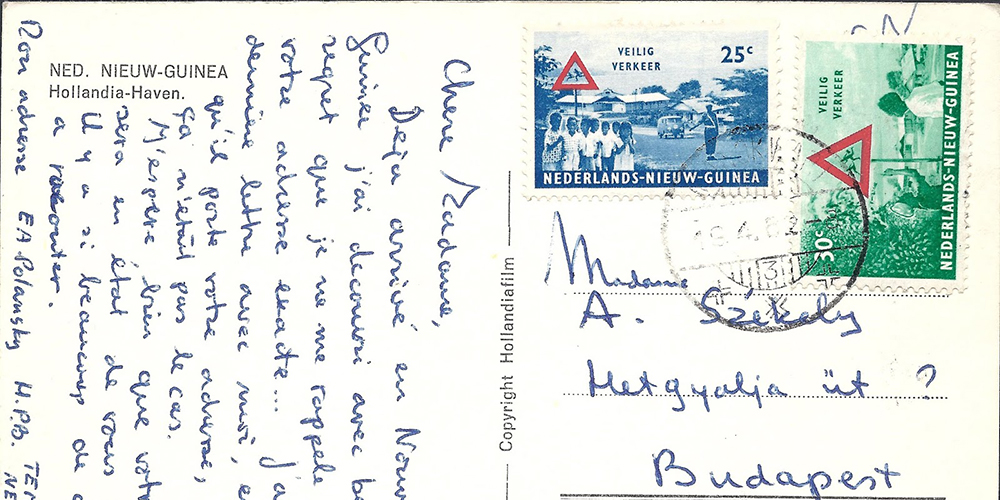 NED. NIEUW-GUINEA
Hollandia-Haven.
Chère Madame,
Deja arrivé en Nouv
Guinee j'ai decouvri avec be
regret que je ne me rappele
votre adresse exacte... j'a
dernière lettre avec moi, e
qu'il porte votre adresse,
ça n'etait pas le cas.
J'espère bien que votr
sera en état de vous
il y a si beaucoup de c
a raconter.
Mon adresse EA Polansky M.P.B. TER
NE
Copyright Hollandiafilm
VEILIG
VERKEER
25c
NEDERLANDS-NIEUW-GUINEA
VEILIG
VERKEER
30c
NEDERLANDS-NIEUW-GUINEA
3
Madame
A. Székely
Hetgyalja üt ?
Budapest